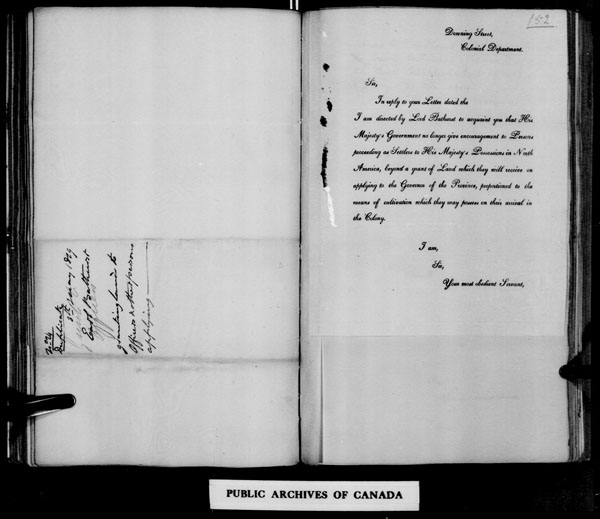 No. 4
Duplicate
5th January 1819
Earl Bathurst
granting lands to
Officers & other persons
applying
152
Downing Street,
Colonial Department.
Sir,
In reply to your Letter dated the
I am directed by Lord Bathurst to acquaint you that His
Majesty's Government no longer give encouragement to Persons
proceeding as Settlers to His Majesty's Possessions in North
America, beyond a grant of Land which they will receive on
applying to the Governor of the Province, proportioned to the
means of cultivation which they may possess on their arrival in
the Colony.
I am,
Sir,
Your most obedient Servant,
PUBLIC ARCHIVES OF CANADA